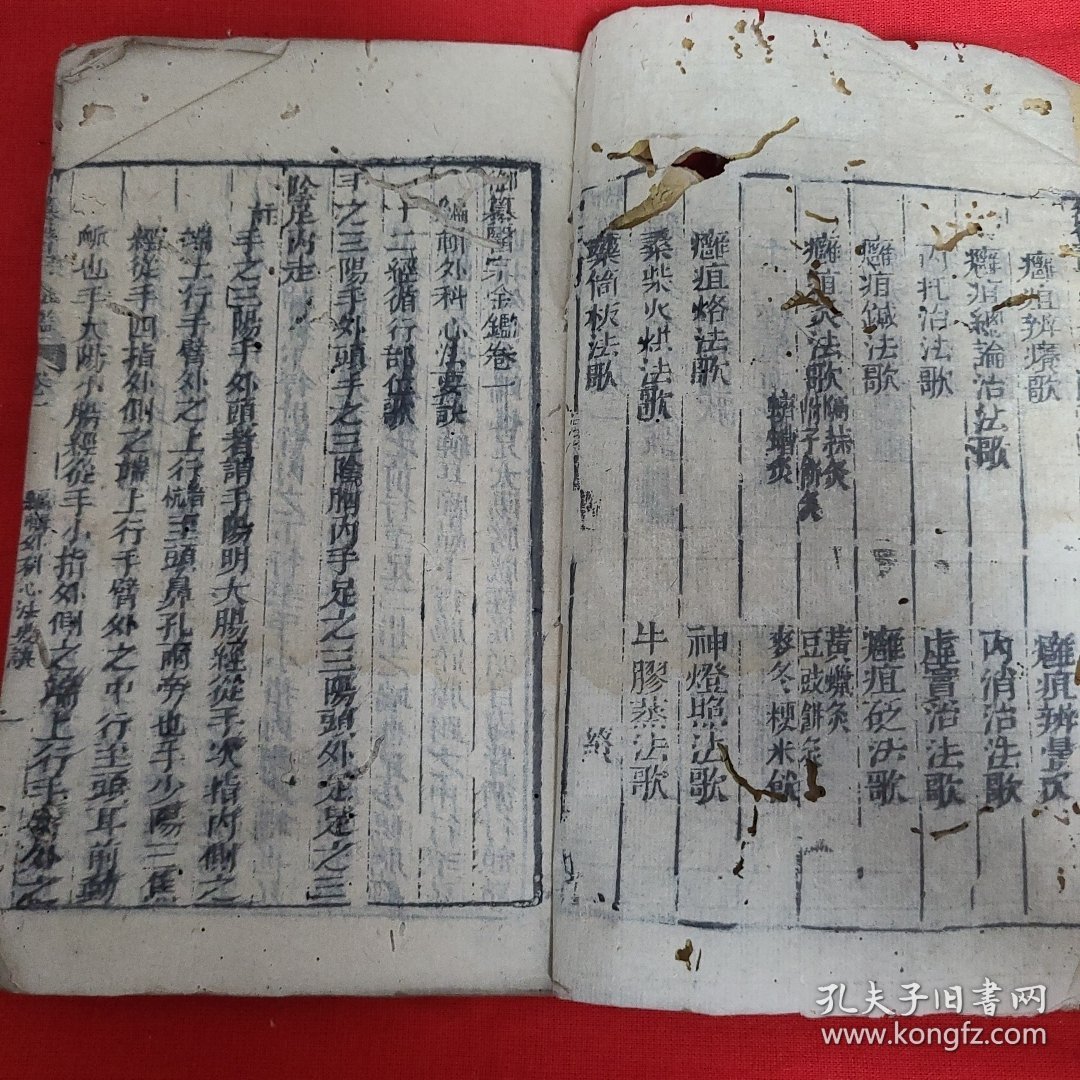 癰疽辨癢歌
癰疽總論治法歌
內消治法歌
內托治法歌
虛實治法歌
癰疽鍼法歌
癰疽砭法歌
癰疽灸法歌
隔蒜灸
附子餅灸
蠐螬灸
黃蠟灸
豆豉餅灸
麥冬粳米飲
癰疽烙法歌
神燈照法歌
桑柴火烘法歌
牛膠蒸法歌
藥筒拔法歌
終
御纂醫宗金鑑卷一
編輯外科心法要訣
十二經循行部位歌
手之三陽手外頭手之三陰胸內手足之三陽頭外足足之三
陰足內走
註
手之三陽手外頭者謂手陽明大腸經從手次指內側之
端上行手臂外之上行至頭鼻孔兩旁也手少陽三焦
經從手四指外側之端上行手臂外之中行至頭耳前動
脈也手太陽小腸經從手小指外側之端上行手臂外之
編輯外科心法要訣
一
孔夫子旧书网
www.kongfz.com